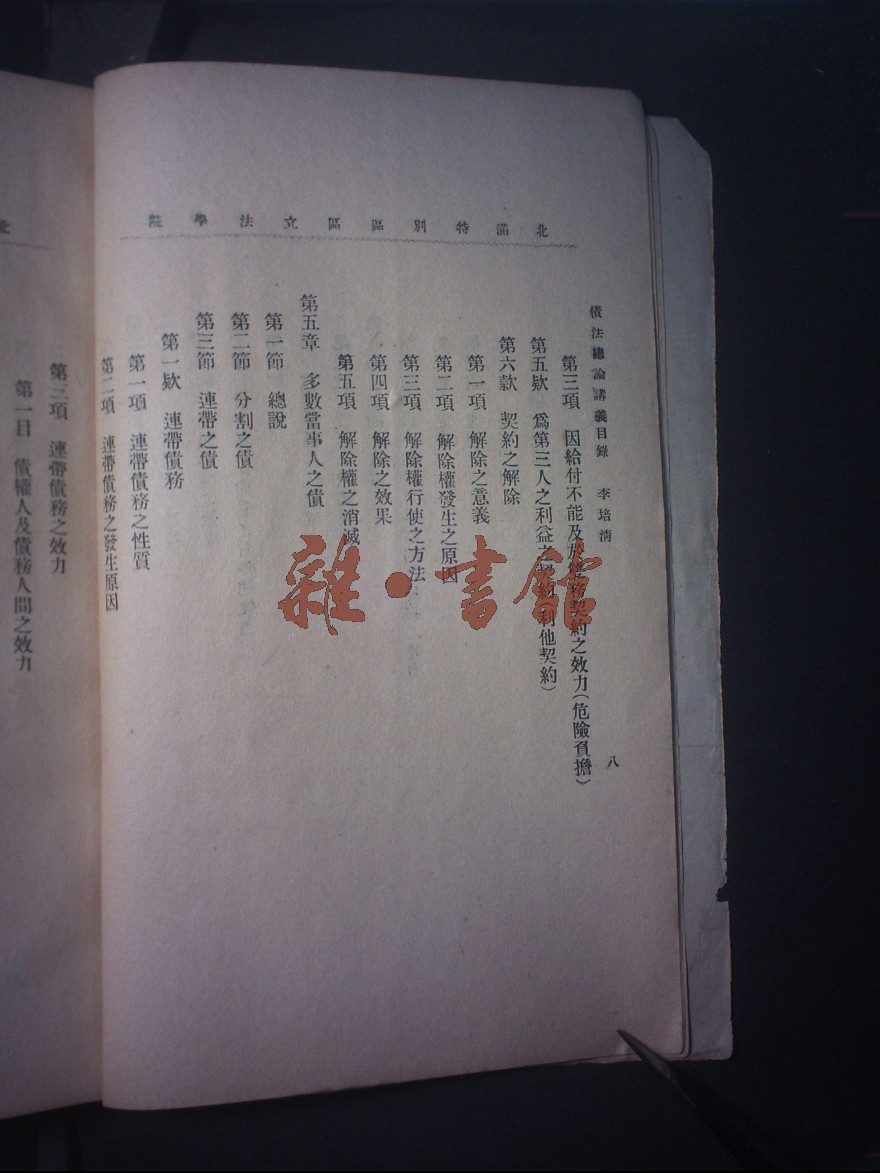 北滿特別區區立法學院
債法總論講義目錄　李培清　八
第三項　因給付不能及於雙務契約之效力(危險負擔)
第五欵　爲第三人之利益之契約(利他契約)
第六款　契約之解除
第一項　解除之意義
第二項　解除權發生之原因
第三項　解除權行使之方法
第四項　解除之效果
第五項　解除權之消滅
第五章　多數當事人之債
第一節　總說
第二節　分割之債
第三節　連帶之債
第一欵　連帶債務
第一項　連帶債務之性質
第二項　連帶債務之發生原因
第三項　連帶債務之效力
第一目　債權人及債務人間之效力
雜·書館